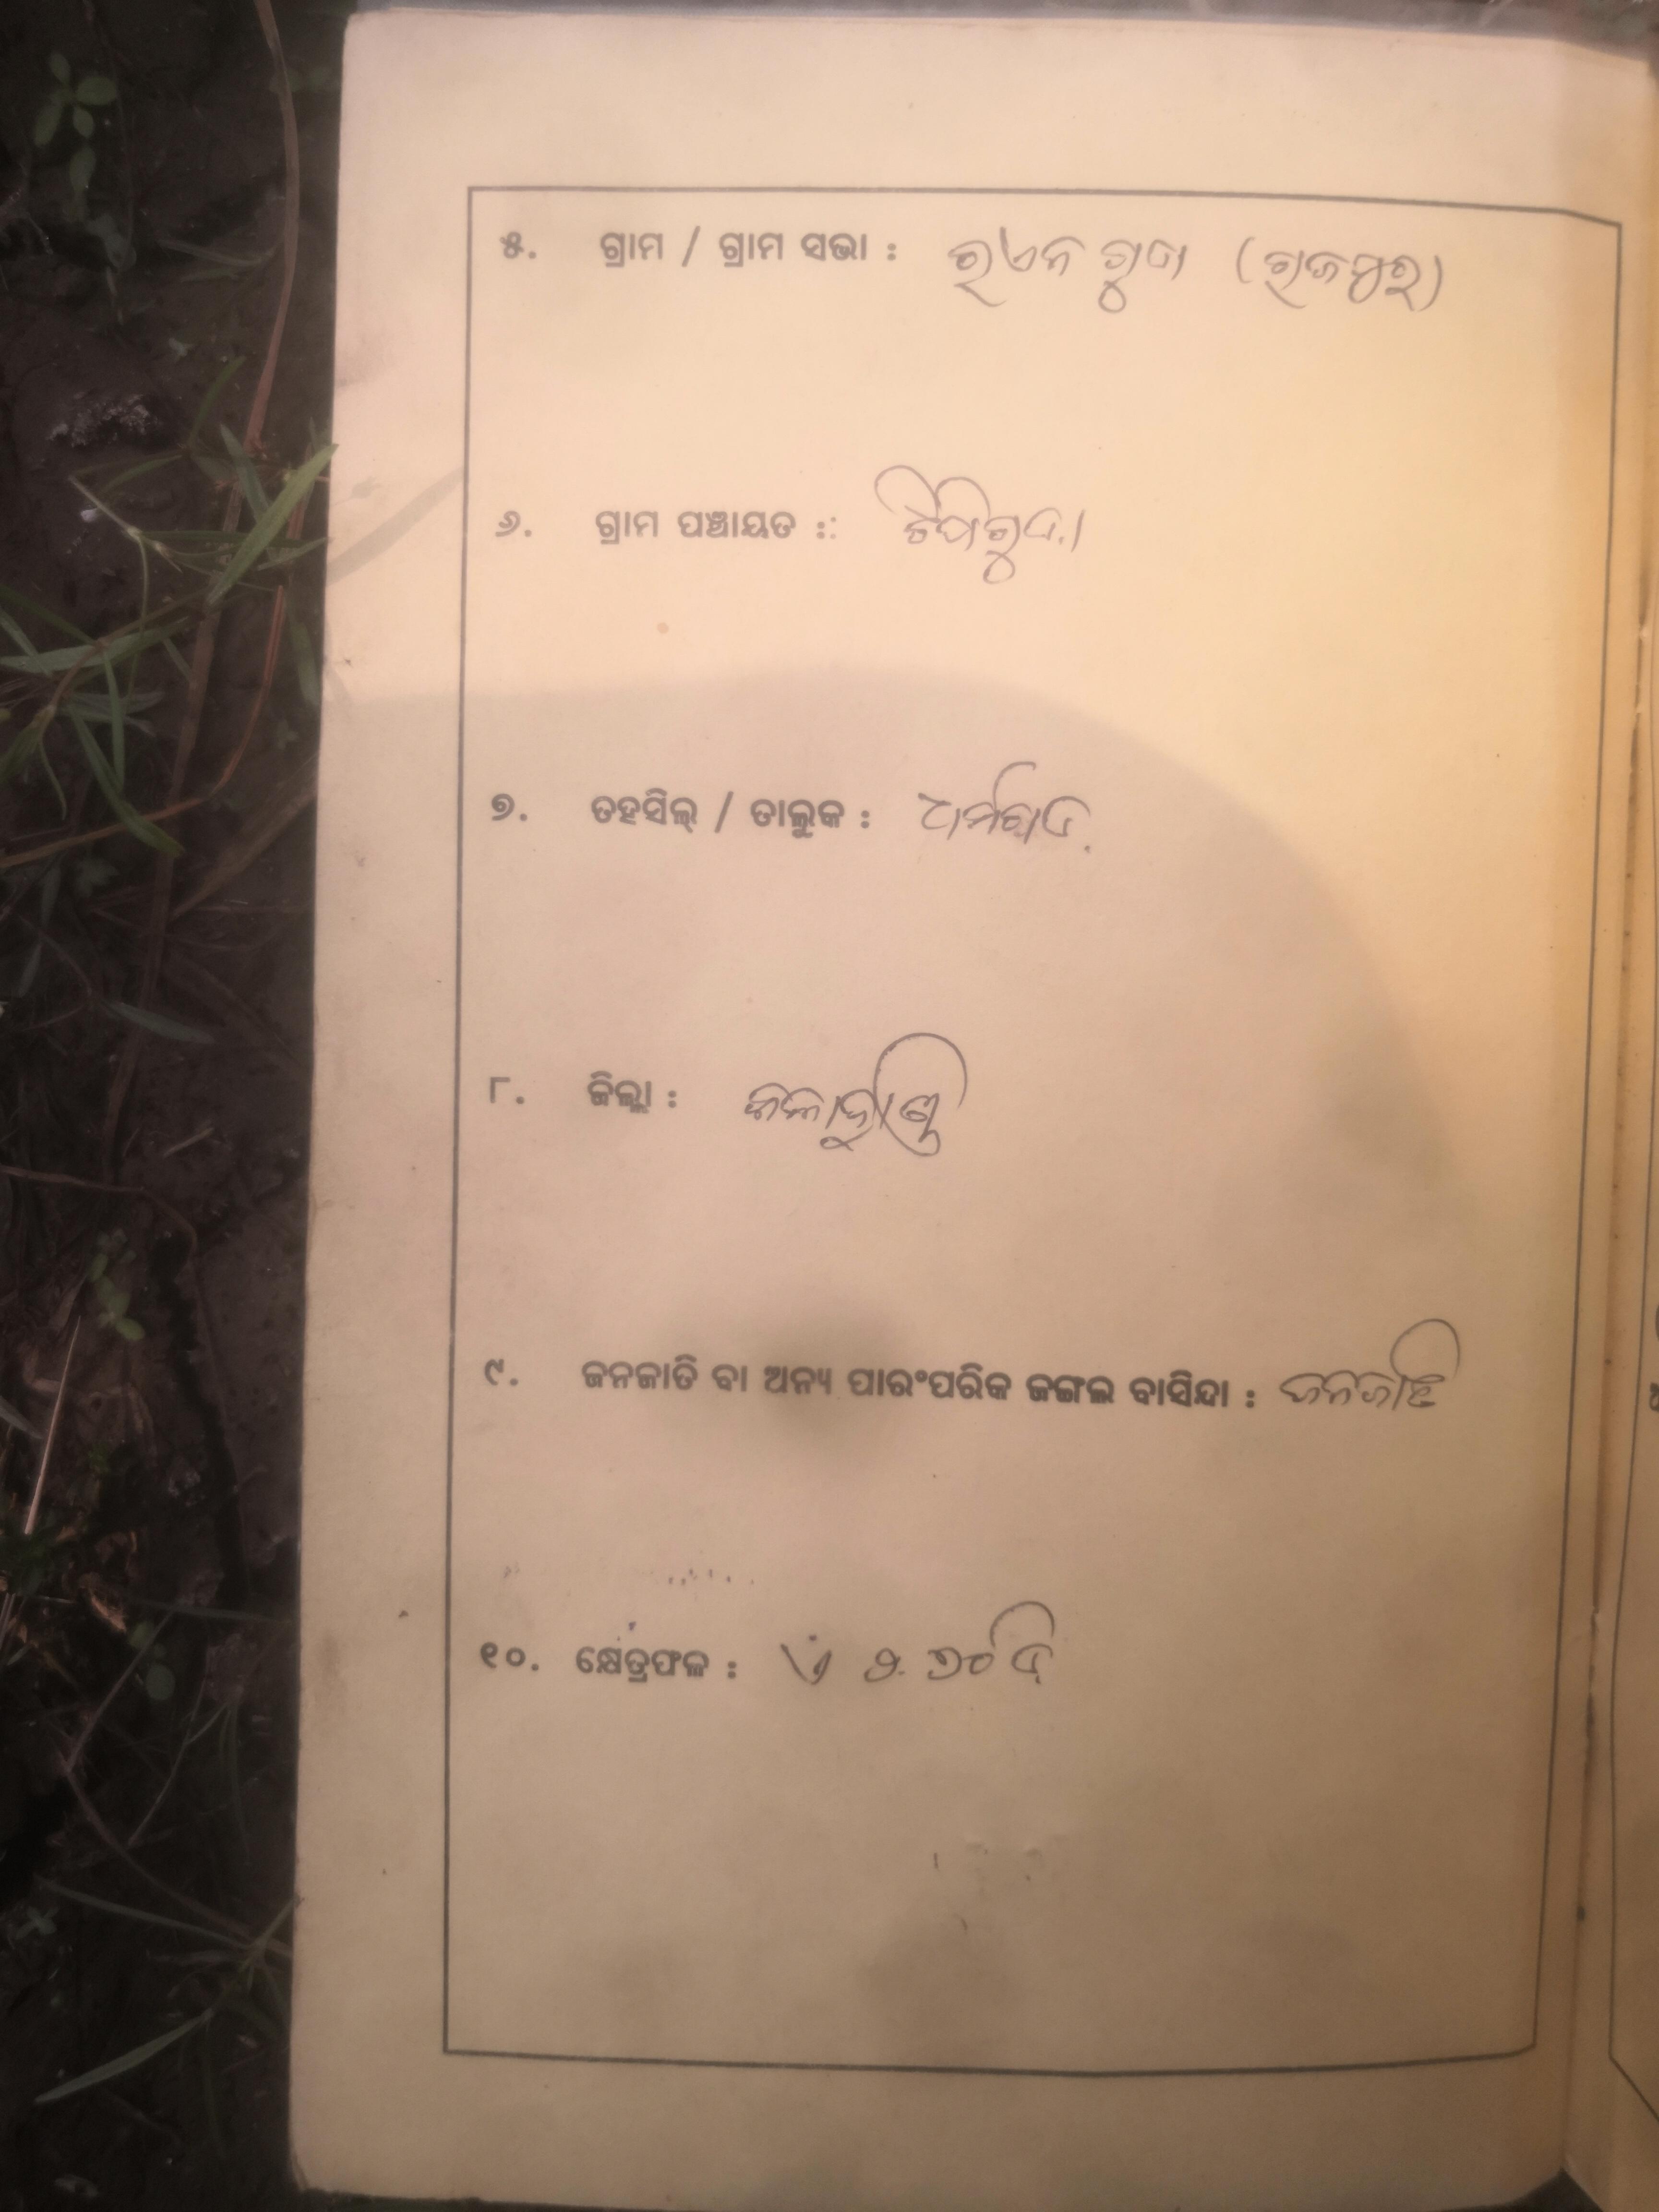 ୫. ଗ୍ରାମ / ଗ୍ରାମ ସଭା : (ରାଜପୁର)
୬. ଗ୍ରାମ ପଞ୍ଚାୟତ :: ଟିପିଗୁଡ଼ା
୭. ତହସିଲ୍ / ତାଲୁକ : ଧର୍ମଗଡ଼
୮. ଜିଲ୍ଲା : କଳାହାଣ୍ଡି
୯. ଜନଜାତି ବା ଅନ୍ୟ ପାରଂପରିକ ଜଙ୍ଗଲ ବାସିନ୍ଦା : ଜନଜାତି
୧୦. କ୍ଷେତ୍ରଫଳ :